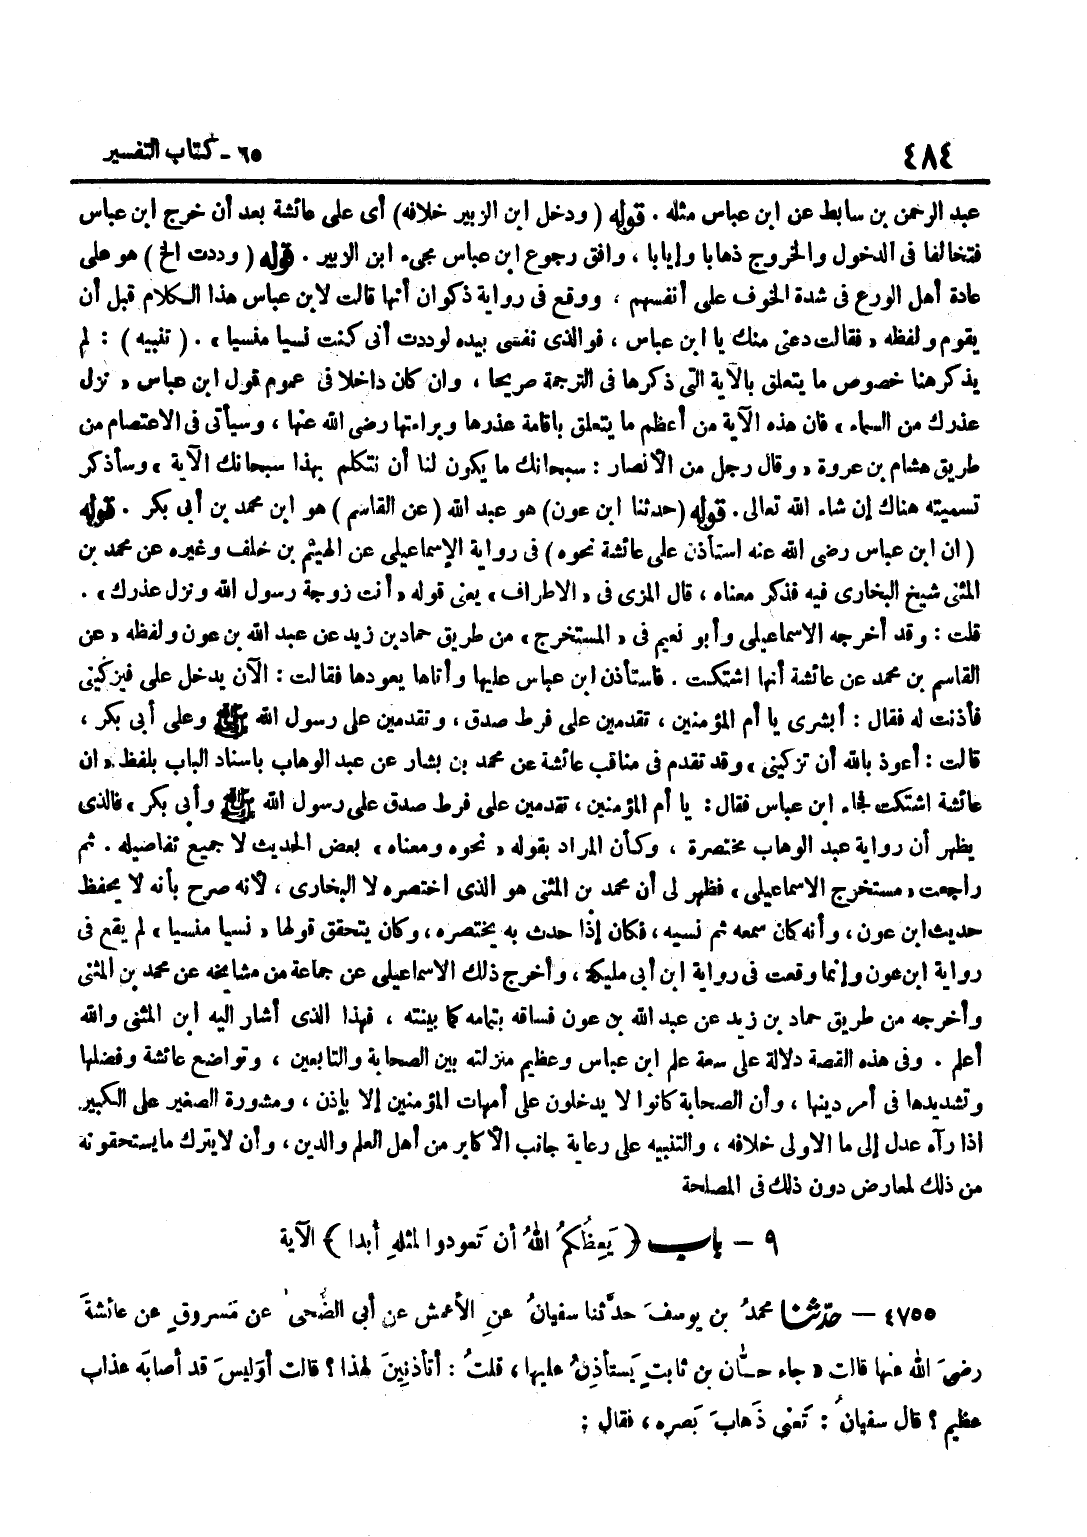 ٤٨٤
٦٥ - كتاب التفسير
عبد الرحمن بن سابط عن ابن عباس مثله . قوله ( ودخل ابن الزبير خلافه ) أى على عائشة بعد أن خرج ابن عباس
فتخالفا فى الدخول والخروج ذهابا وإيابا ، وافق رجوع ابن عباس مجىء ابن الزبير . قوله ( وددت الخ ) هو على
عادة أهل الورع فى شدة الخوف على أنفسهم ، ووقع فى رواية ذكوان أنها قالت لابن عباس هذا الكلام قبل أن
يقوم ولفظه « فقالت دعنى منك يا ابن عباس ، فوالذى نفسى بيده لوددت أنى كنت نسيا منسيا » . ( تنبيه ) : لم
يذكر هنا خصوص ما يتعلق بالآية التى ذكرها فى الترجمة صريحا ، وان كان داخلا فى عموم قول ابن عباس « نزل
عذرك من السماء » فان هذه الآية من أعظم ما يتعلق باقامة عذرها وبراءتها رضى الله عنها ، وسيأتى فى الاعتصام من
طريق هشام بن عروة « وقال رجل من الأنصار : سبحانك ما يكون لنا أن نتكلم بهذا سبحانك الآية » وسأذكر
تسميته هناك إن شاء الله تعالى . قوله ( حدثنا ابن عون ) هو عبد الله ( عن القاسم ) هو ابن محمد بن أبى بكر . قوله
( ان ابن عباس رضى الله عنه استأذن على عائشة نحوه ) فى رواية الإسماعيلى عن الهيثم بن خلف وغيره عن محمد بن
المثنى شيخ البخارى فيه فذكر معناه ، قال المزى فى « الاطراف » يعنى قوله « أنت زوجة رسول الله ونزل عذرك » .
قلت : وقد أخرجه الاسماعيلى وأبو نعيم فى « المستخرج » من طريق حماد بن زيد عن عبد الله بن عون ولفظه « عن
القاسم بن محمد عن عائشة أنها اشتكت . فاستأذن ابن عباس عليها وأتاها يعودها فقالت : الآن يدخل على فيزكينى
فأذنت له فقال : أبشرى يا أم المؤمنين ، تقدمين على فرط صدق ، وتقدمين على رسول الله ﷺ وعلى أبى بكر ،
قالت : أعوذ بالله أن تزكينى » وقد تقدم فى مناقب عائشة عن محمد بن بشار عن عبد الوهاب باسناد الباب بلفظ « ان
عائشة اشتكت فجاء ابن عباس فقال : يا أم المؤمنين ، تقدمين على فرط صدق على رسول الله ﷺ وأبى بكر » فالذى
يظهر أن رواية عبد الوهاب مختصرة ، وكأن المراد بقوله « نحوه ومعناه » بعض الحديث لا جميع تفاصيله . ثم
راجعت « مستخرج الاسماعيلى » فظهر لى أن محمد بن المثنى هو الذى اختصره لا البخارى ، لأنه صرح بأنه لا يحفظ
حديث ابن عون ، وأنه كان سمعه ثم نسيه ، فكان إذا حدث به يختصره ، وكان يتحقق قولها « نسيا منسيا » لم يقع فى
رواية ابن عون وإنما وقعت فى رواية ابن أبى مليكة ، وأخرج ذلك الاسماعيلى عن جماعة من مشايخه عن محمد بن المثنى
وأخرجه من طريق حماد بن زيد عن عبد الله بن عون فساقه بتمامه كما بينته ، فهذا الذى أشار اليه ابن المثنى والله
أعلم . وفى هذه القصة دلالة على سعة علم ابن عباس وعظيم منزلته بين الصحابة والتابعين ، وتواضع عائشة وفضلها
وتشديدها فى أمر دينها ، وأن الصحابة كانوا لا يدخلون على أمهات المؤمنين إلا بإذن ، ومشورة الصغير على الكبير
اذا رآه عدل إلى ما الاولى خلافه ، والتنبيه على رعاية جانب الأكابر من أهل العلم والدين ، وأن لا يترك ما يستحقونه
من ذلك لمعارض دون ذلك فى المصلحة
٩ - باب ( يَعِظُكمُ اللهُ أن تَعودوا لمثلهِ أبدا ) الآية
٤٧٥٥ - حدّثنا محمدُ بن يوسفَ حدَّثنا سفيانُ عنِ الأعمش عن أبى الضُّحى عن مَسروقٍ عن عائشةَ
رضىَ الله عنها قالت « جاء حسَّان بن ثابتٍ يَستأذِنُ عليها ، قلتُ : أتأذنِينَ لهذا ؟ قالت أوَليسَ قد أصابَه عذاب
عظيم ؟ قال سفيانُ : تَعْنى ذَهابَ بَصره ، فقال :